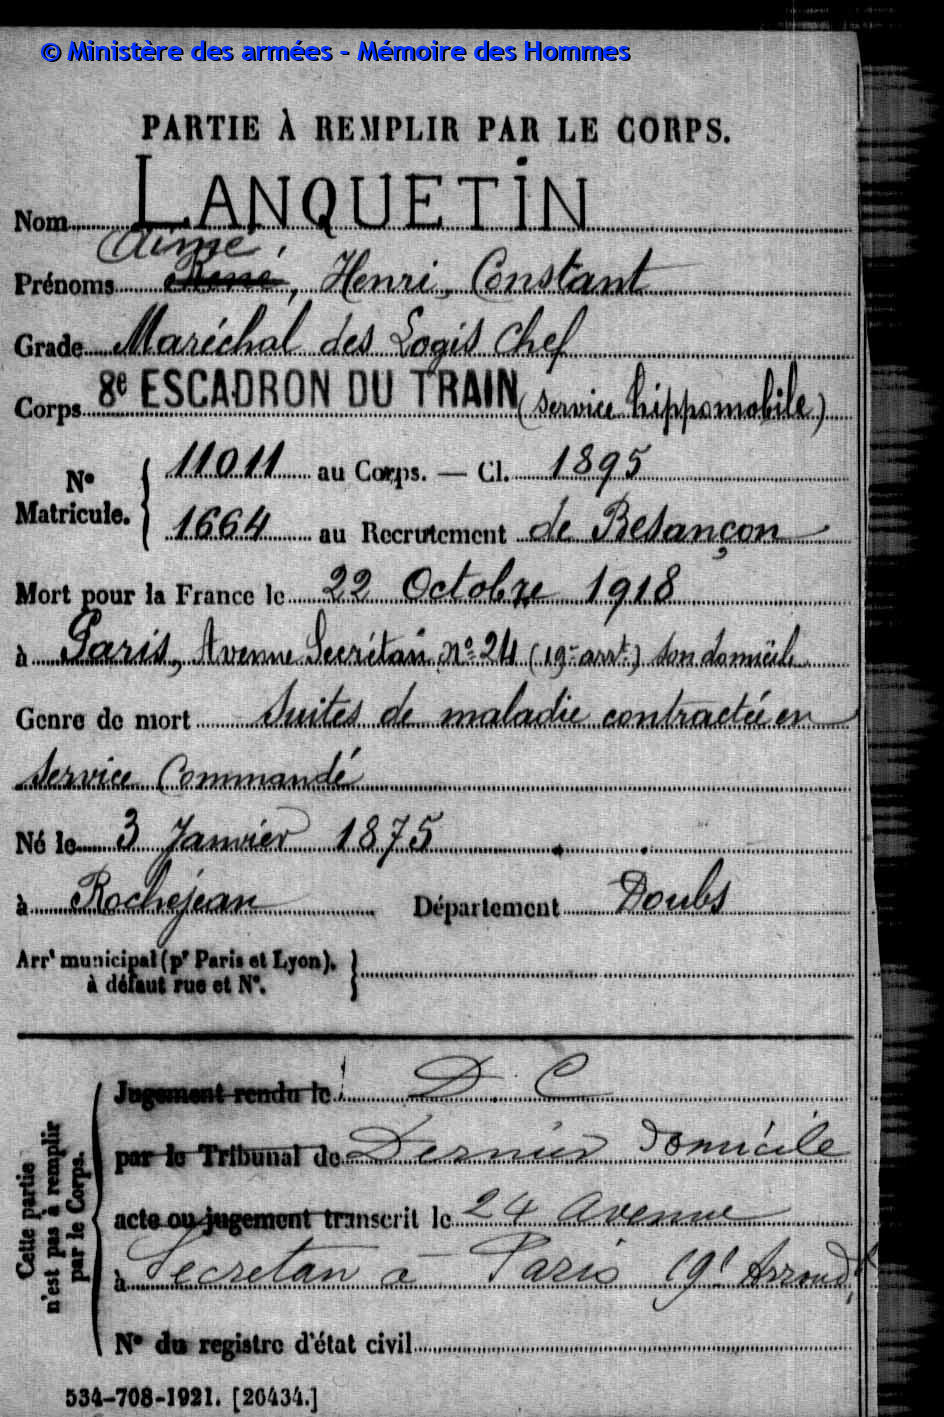 © Ministère des armées - Mémoire des Hommes
PARTIE À REMPLIR PAR LE CORPS.
Nom LANQUETIN
Aimé
Prénoms René, Henri, Constant
Grade Maréchal des Logis Chef
Corps 8e ESCADRON DU TRAIN (service hippomobile)
No Matricule. { 11011 au Corps. — Cl. 1895
1664 au Recrutement de Besançon
Mort pour la France le 22 Octobre 1918
à Paris, Avenue Secrétan No 24 (19e arrt) son domicile
Genre de mort Suites de maladie contractée en
service Commandé
Né le 3 Janvier 1875
à Rochejean Département Doubs
Arrt municipal (pr Paris et Lyon), }
à défaut rue et No.
Cette partie n'est pas à remplir par le Corps.
Jugement rendu le D. C
par le Tribunal de Dernier Domicile
acte ou jugement transcrit le 24 Avenue
à Secretan à Paris 19e Arrondt
No du registre d'état civil
534-708-1921. [26434.]